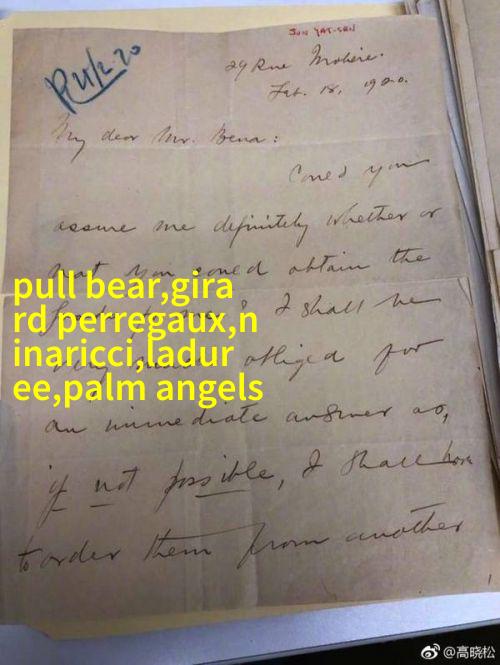 SUN YAT-SEN
R 21/2.20
29 Rue Molière.
Feb. 18, 1920.
My dear Mr. Bena:
Could you
assure me definitely whether or
not you could obtain the
for me? I shall be
very much obliged for
an immediate answer as,
if not possible, I shall have
to order them from another
pull bear,gira
rd perregaux,n
inaricci,ladur
ee,palm angels
@高晓松